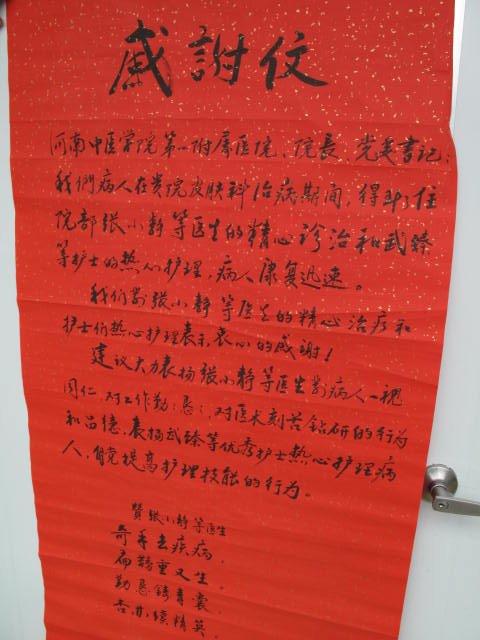 感謝仗
河南中医学院第一附属医院、院長、党委書记:
我們病人在贵院皮肤科治病期间,得到住
院部张小静等医生的精心诊治和武臻
等护士的热心护理,病人康复迅速。
我们对张小静等医生的精心治疗和
护士们热心护理表示衷心的感謝!
建议大力表扬张小静等医生對病人一視
同仁,对工作勤勤恳恳,对医术刻苦钻研的行为
和品德,表扬武臻等优秀护士热心护理病
人,自觉提高护理技能的行为。
贊张小静等医生
奇手去疾病,
扁鵲重又生。
勤恳鑄青囊
杏林續精英。